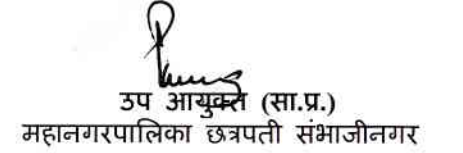 उप आयुक्त (सा.प्र.)
महानगरपालिका छत्रपती संभाजीनगर